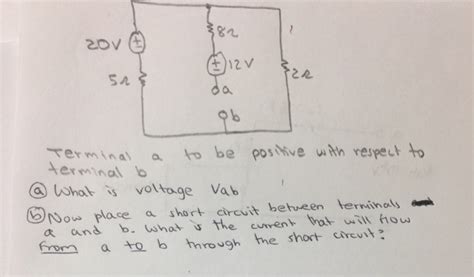 8Ω
20V
12V
5Ω
2Ω
a
b
Terminal a to be positive with respect to
terminal b
ⓐ What is voltage Vab
ⓑ Now place a short circuit between terminals
a and b. What is the current that will flow
from a to b through the short circuit?